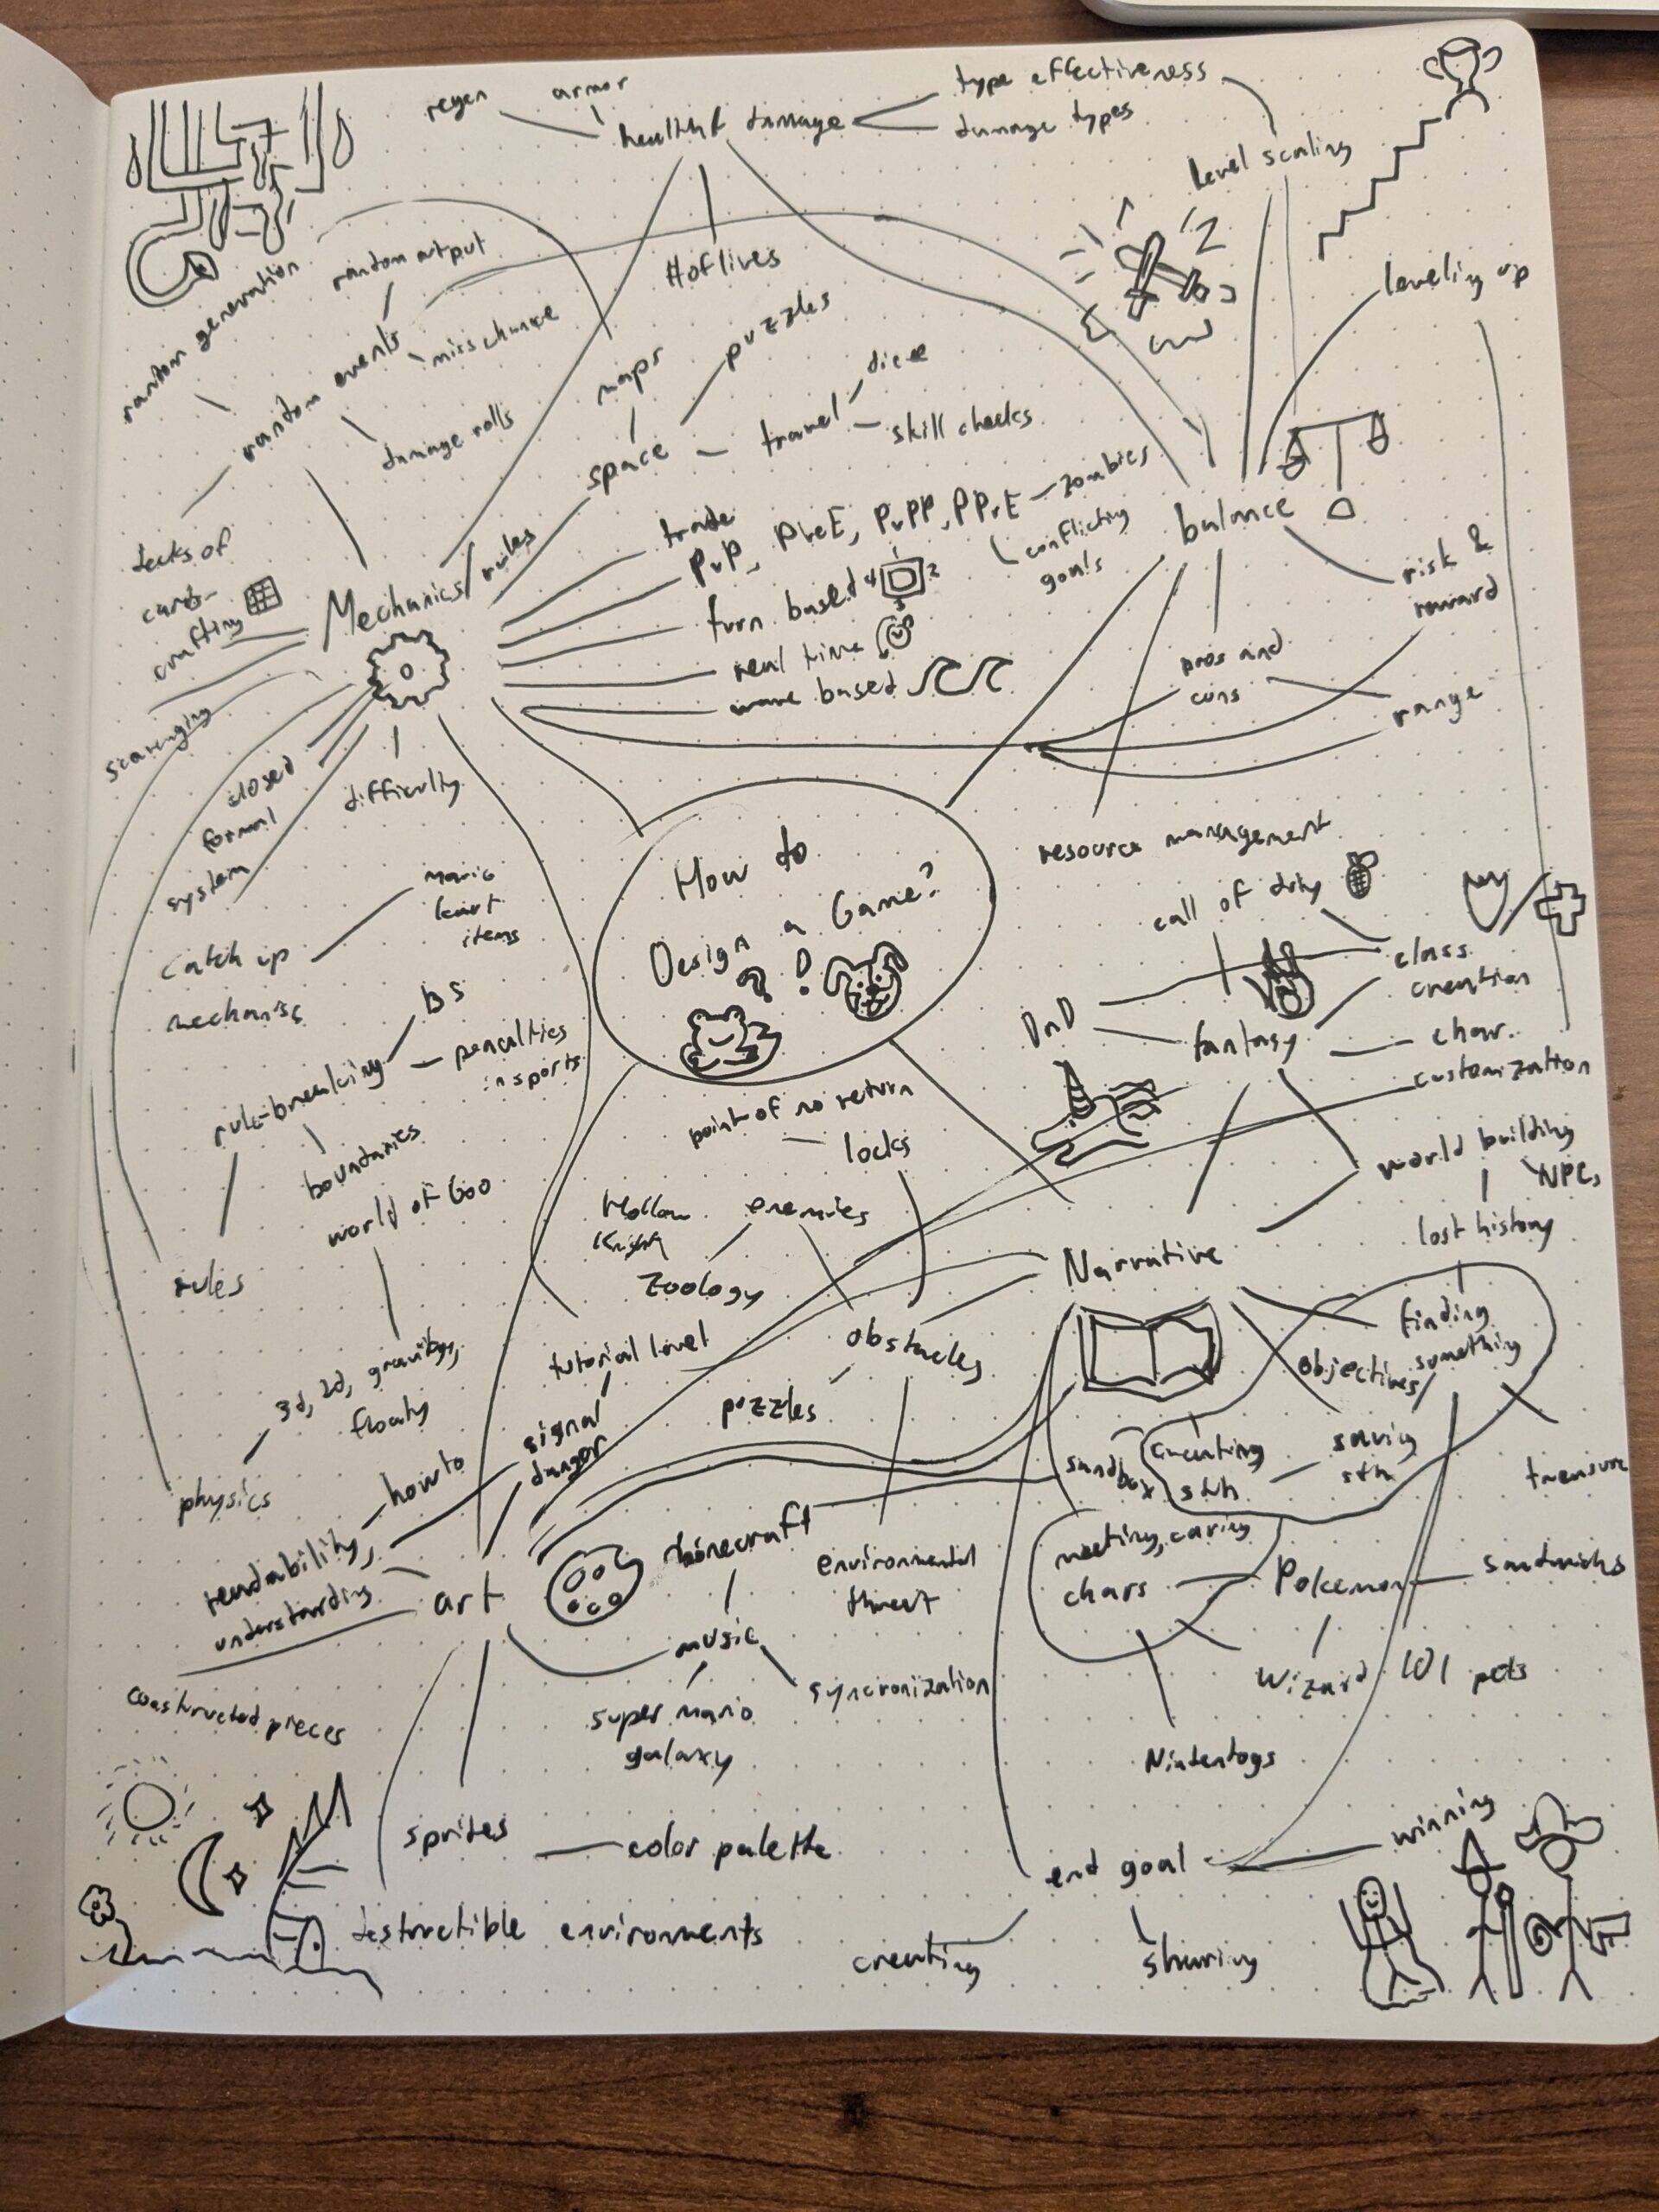 regen
armor
health & damage
type effectiveness
damage types
level scaling
# of lives
leveling up
random generation
random output
random events
miss chance
damage rolls
maps
puzzles
space
travel
dice
skill checks
decks of
cards
crafting
Mechanics/rules
trade
PvP, PveE, PvPP, PPvE
zombies
conflicting
goals
turn based
4
1
2
3
real time
wave based
balance
risk &
reward
pros and
cons
range
resource management
scavenging
closed
formal
system
difficulty
catch up
mechanisc
mario
kart
items
How to
Design a Game?
? !
call of duty
class
creation
DnD
fantasy
char.
customization
world building
NPCs
lost history
rule-breaking
BS
penalties
in sports
boundaries
world of Goo
rules
point of no return
locks
Hollow
Knight
enemies
zoology
obstacles
tutorial level
puzzles
Narrative
finding
something
objectives/
sandbox
creating
sth
saving
sth
treasure
3d, 2d, gravity,
floaty
physics
how to
signal
danger
readability,
understanding
art
minecraft
environmental
threat
meeting, caring
chars
Pokemon
sandwichs
music
syncronization
Wizard 101 pets
super mario
galaxy
Nintendogs
constructed pieces
sprites
color palette
end goal
winning
destructible environments
creating
sharing